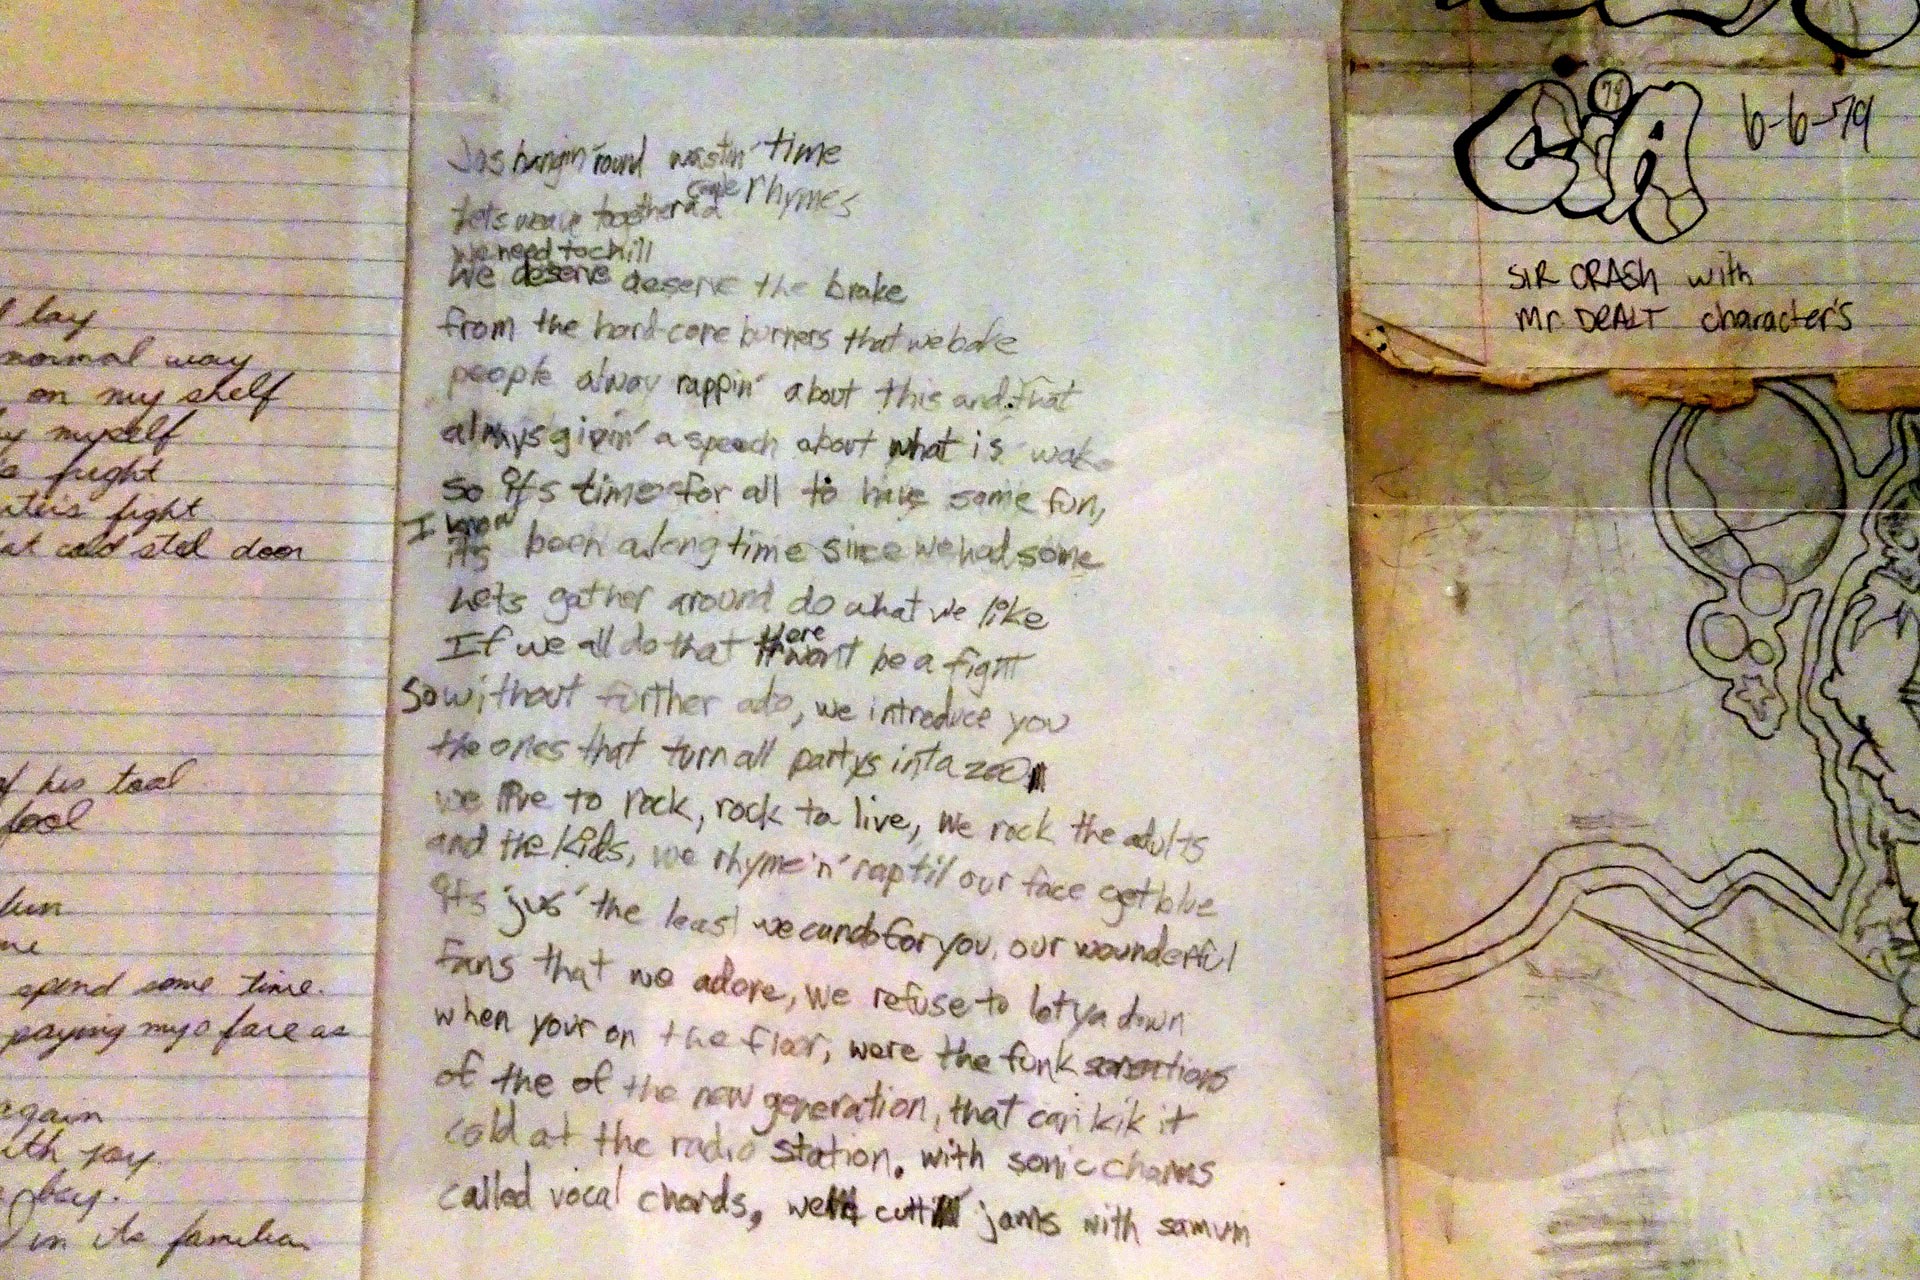 l lay
normal way
on my shelf
by myself
fight
cold steel door
of his tool
fool
fun
me
spend some time.
paying my fare as
again
with joy.
bay.
in its familiar
Jus hangin' round wastin' time
Lets weave together a couple rhymes
we need to chill
We deserve deserve the brake
from the hard-core burners that we bake
people alway rappin' about this and that
always givin' a speech about what is wak
so it's time for all to have some fun,
I know
its been a long time since we had some
Lets gather around do what we like
If we all do that there won't be a fight
So without further ado, we introduce you
the ones that turn all partys inta zoo
we live to rock, rock to live, we rock the adults
and the kids, we rhyme 'n' rap til our face get blue
its jus' the least we can do for you, our wounderful
fans that we adore, we refuse to let ya down
when your on the floor, were the funk
of the of the new generation, that can kik it
cold at the radio station. with sonic charms
called vocal chords, we cuttin jams with
79
CiA 6-6-79
SIR CRASH with
Mr DEALT character's